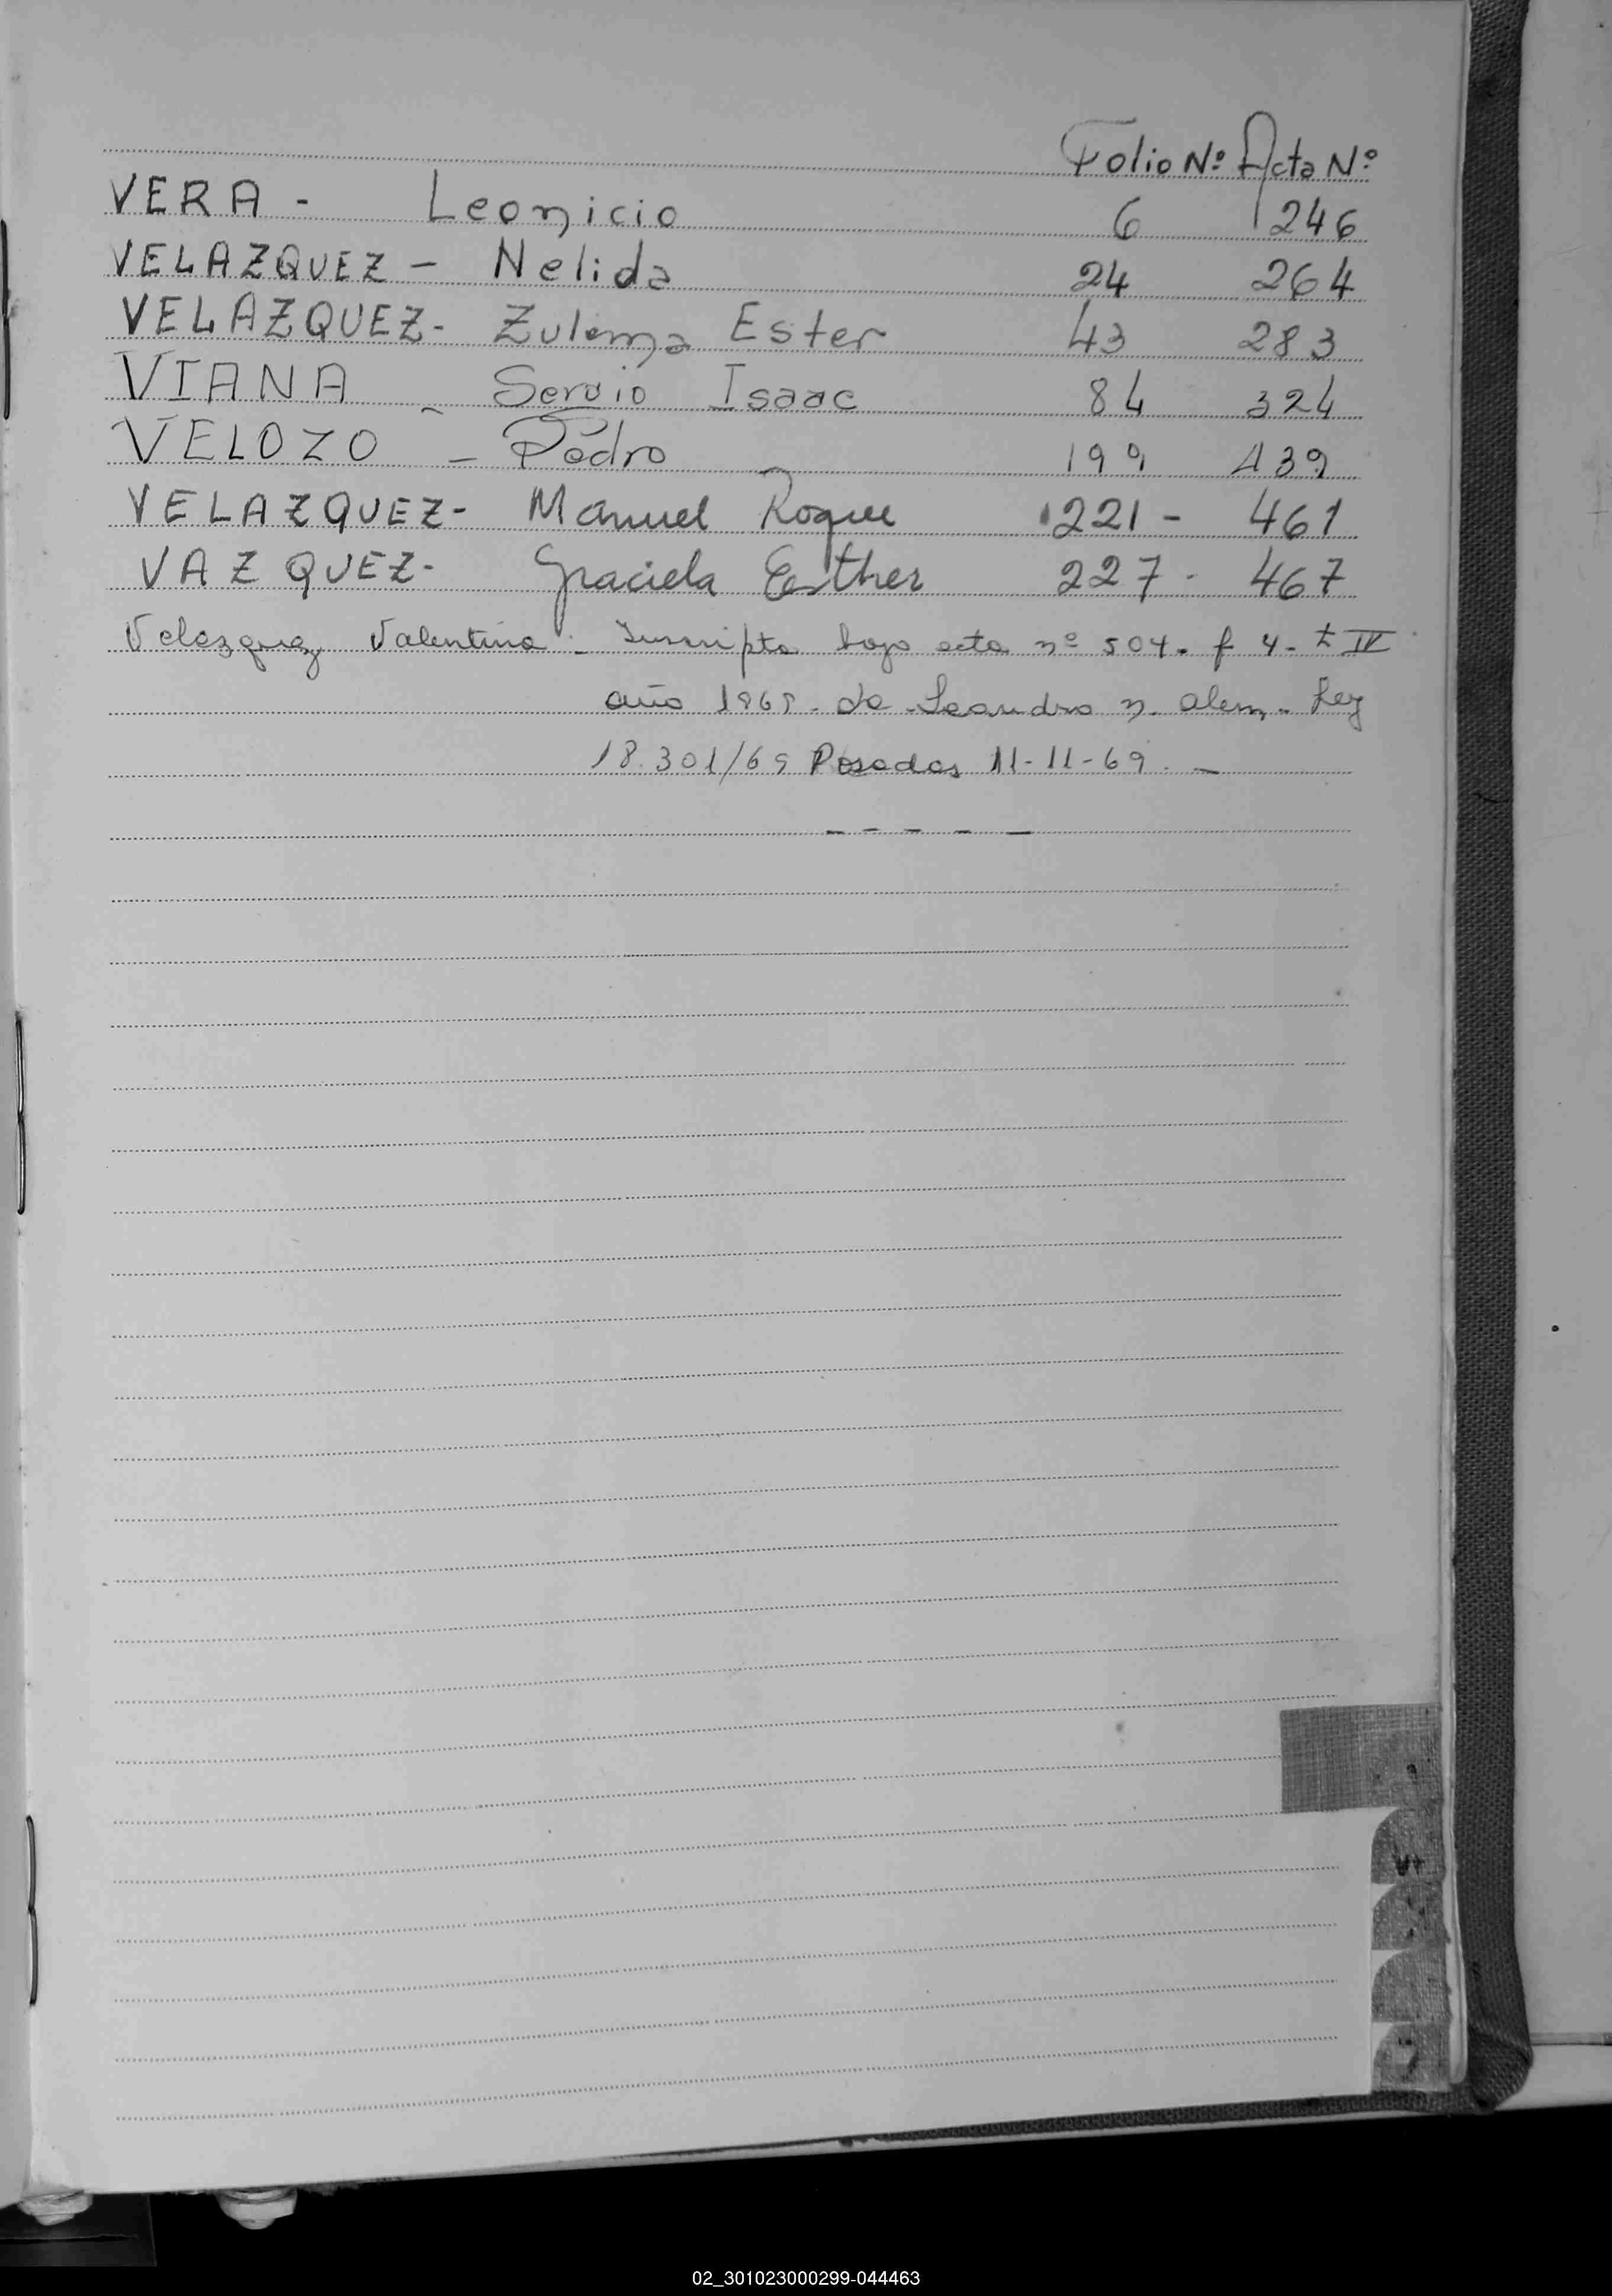 Folio Nº Acta Nº
VERA - Leonicio 6 246
VELAZQUEZ - Nelida 24 264
VELAZQUEZ - Zulema Ester 43 283
VIANA - Sergio Isaac 84 324
VELOZO - Pedro 199 439
VELAZQUEZ - Manuel Roque 221 - 461
VAZQUEZ - Graciela Esther 227 - 467
Velazquez Valentina - Inscripta bajo acta nº 504. f 4. t IV
año 1969. de Leandro N. Alem. Ley
18.301/69 Posadas 11-11-69. -
02_301023000299-044463